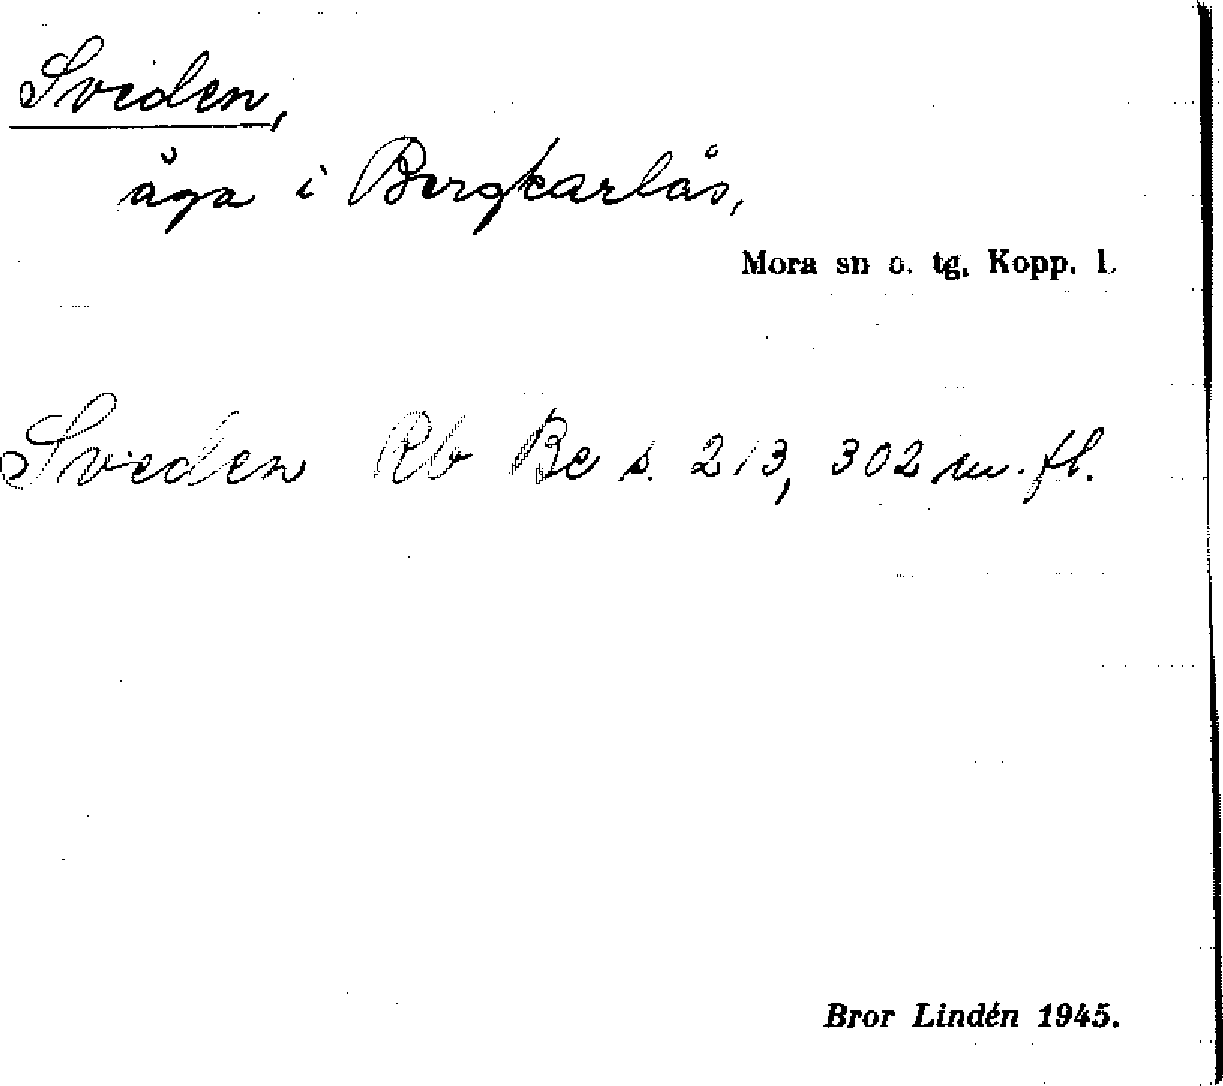 Sviden,
åga i Bergkarlås,
Mora sn o. tg. Kopp. l.
Sveden Rb Be s. 213, 302 m. fl.
Bror Lindén 1945.